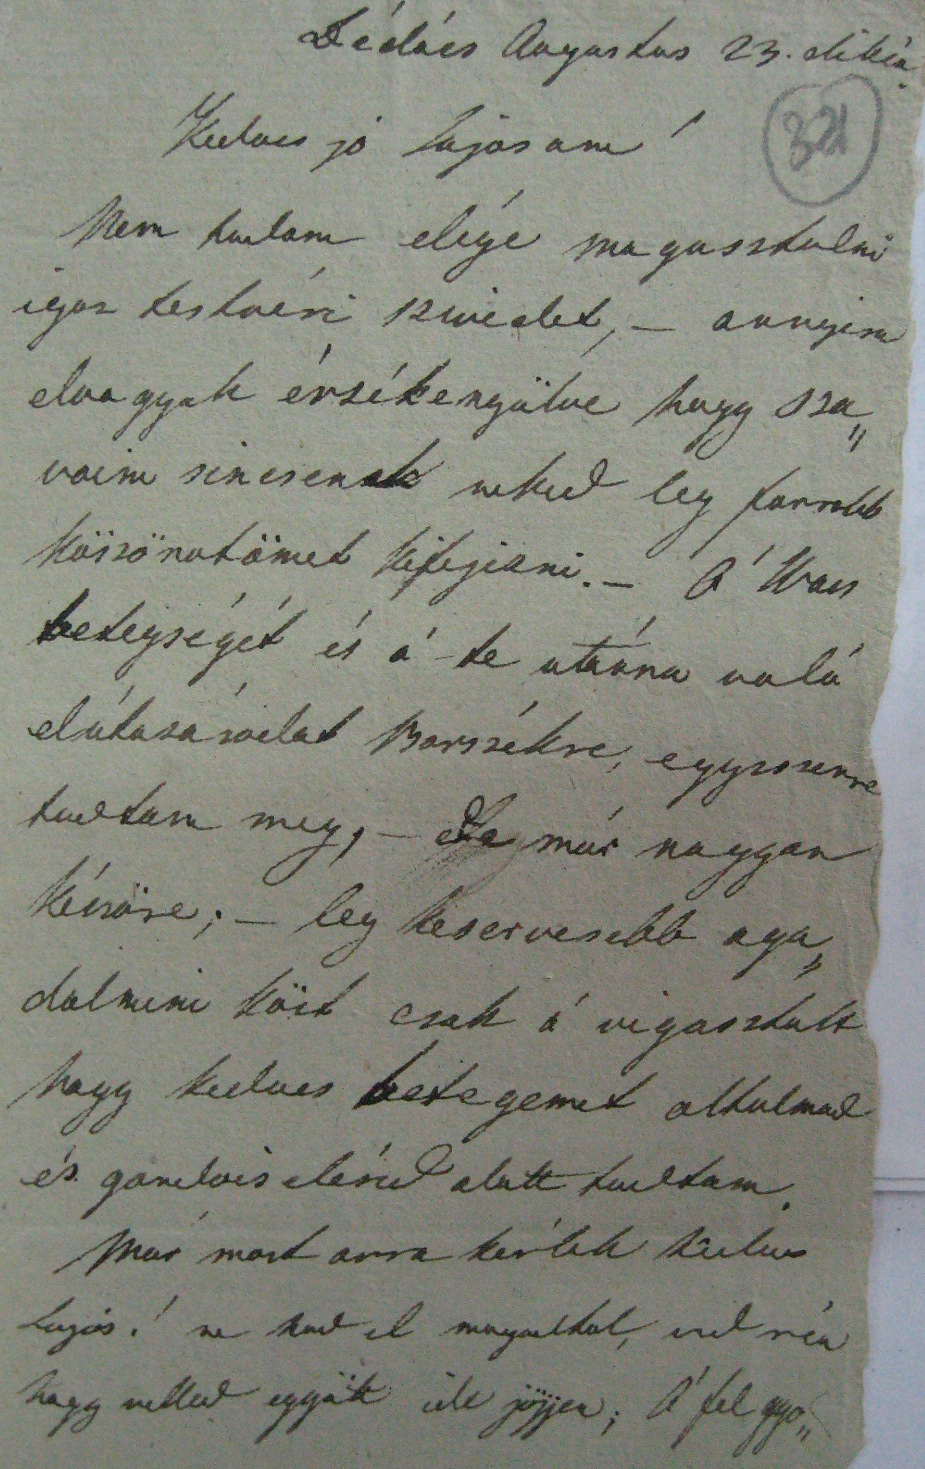 Dédács Augustus 23. dikán.
321
Kedves jó Lajosom!
Nem tudom elégé magasztalni
igaz testvéri szivedet, – annyira
elvagyok érzékenyülve hogy sza„
vaim sincsenek neked leg forrobb
köszönetömet kifejezni. – A'
betegségét és á te utánna való
elútazásodat Borszékre, egyszerre
tudtam meg, – már naggyon
késöre; – leg keservesebb aga„
dalmim köst csak á vigasztalt
hogy kedves betegemet oltalmad
és gondviselésed alatt tudtam.
Már most arra kérlek kedves
Lajos! ne had el magadtol, ved réá
hogy velled eggyütt ide jöjjen; A' fel gyo„